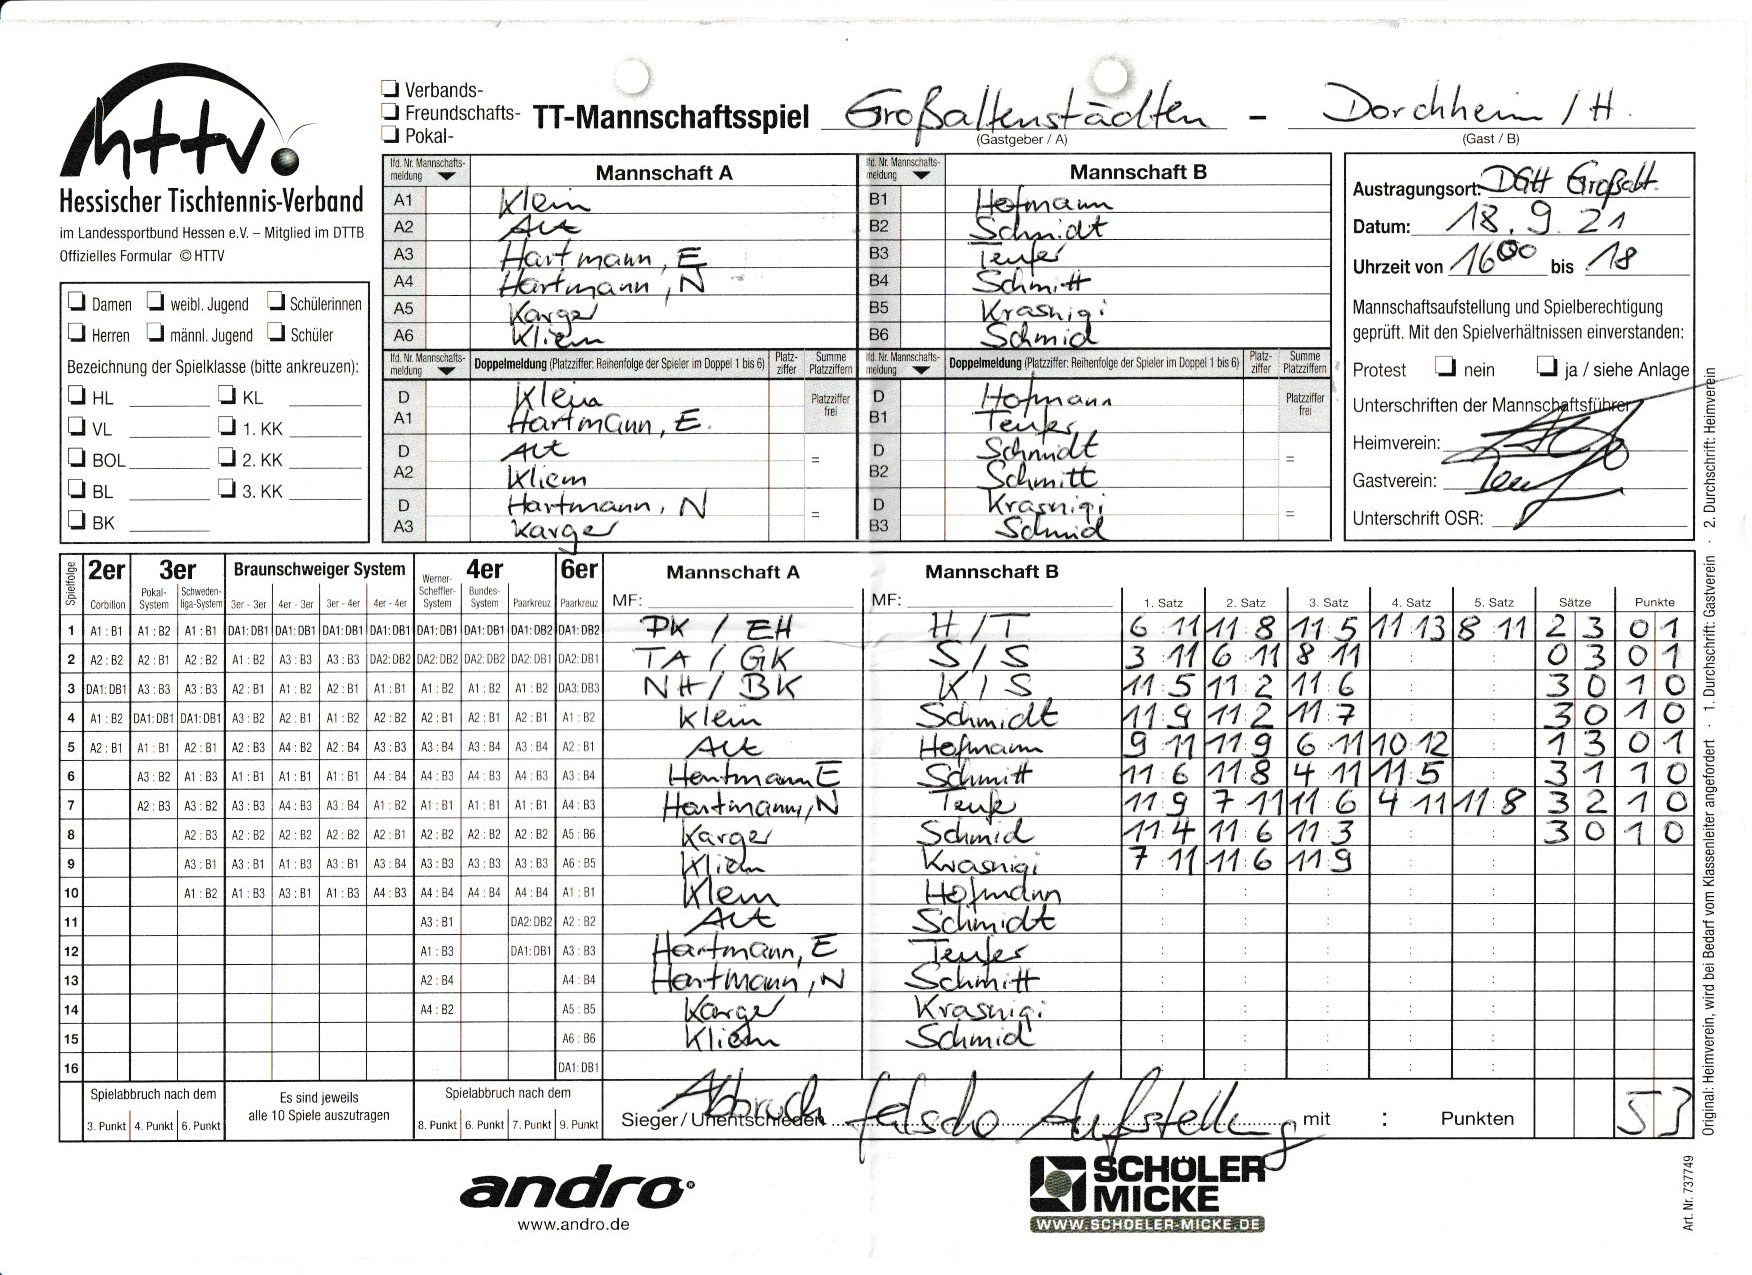 Verbands-
Freundschafts-
Pokal-
TT-Mannschaftsspiel Großaltenstädten - Dorchheim / H.
(Gastgeber / A) (Gast / B)
httv
Hessischer Tischtennis-Verband
im Landessportbund Hessen e.V. – Mitglied im DTTB
Offizielles Formular © HTTV
Damen weibl. Jugend Schülerinnen
Herren männl. Jugend Schüler
Bezeichnung der Spielklasse (bitte ankreuzen):
HL KL
VL 1. KK
BOL 2. KK
BL 3. KK
BK
lfd. Nr. Mannschafts-meldung Mannschaft A lfd. Nr. Mannschafts-meldung Mannschaft B
A1 Klein B1 Hofmann
A2 Alt B2 Schmidt
A3 Hartmann, E B3 Teufer
A4 Hartmann, N B4 Schmitt
A5 Karger B5 Krasniqi
A6 Kliem B6 Schmid
lfd. Nr. Mannschafts-meldung Doppelmeldung (Platzziffer: Reihenfolge der Spieler im Doppel 1 bis 6) Platz-ziffer Summe Platzziffern lfd. Nr. Mannschafts-meldung Doppelmeldung (Platzziffer: Reihenfolge der Spieler im Doppel 1 bis 6) Platz-ziffer Summe Platzziffern
D Klein Platzziffer frei D Hofmann Platzziffer frei
A1 Hartmann, E. B1 Teufer
D Alt = D Schmidt =
A2 Kliem B2 Schmitt
D Hartmann, N = D Krasniqi =
A3 Karger B3 Schmid
Austragungsort: DGH Großalt.
Datum: 18. 9. 21
Uhrzeit von 16 00 bis 18
Mannschaftsaufstellung und Spielberechtigung
geprüft. Mit den Spielverhältnissen einverstanden:
Protest nein ja / siehe Anlage
Unterschriften der Mannschaftsführer
Heimverein:
Gastverein:
Unterschrift OSR:
Spielfolge 2er 3er Braunschweiger System 4er 6er Mannschaft A Mannschaft B
Corbillon Pokal-System Schweden-liga-System 3er - 3er 4er - 3er 3er - 4er 4er - 4er Werner-Scheffler-System Bundes-System Paarkreuz Paarkreuz MF: MF: 1. Satz 2. Satz 3. Satz 4. Satz 5. Satz Sätze Punkte
1 A1 : B1 A1 : B2 A1 : B1 DA1: DB1 DA1: DB1 DA1: DB1 DA1: DB1 DA1: DB1 DA1: DB1 DA1: DB2 DA1: DB2 DK / EH H / T 6 11 11 8 11 5 11 13 8 11 2 3 0 1
2 A2 : B2 A2 : B1 A2 : B2 A1 : B2 A3 : B3 A3 : B3 DA2: DB2 DA2: DB2 DA2: DB2 DA2: DB1 DA2: DB1 TA / GK S / S 3 11 6 11 8 11 0 3 0 1
3 DA1: DB1 A3 : B3 A3 : B3 A2 : B1 A1 : B2 A2 : B1 A1 : B1 A1 : B2 A1 : B2 A1 : B2 DA3: DB3 NH / BK K / S 11 5 11 2 11 6 3 0 1 0
4 A1 : B2 DA1: DB1 DA1: DB1 A3 : B2 A2 : B1 A1 : B2 A2 : B2 A2 : B1 A2 : B1 A2 : B1 A1 : B2 Klein Schmidt 11 9 11 2 11 7 3 0 1 0
5 A2 : B1 A1 : B1 A2 : B1 A2 : B3 A4 : B2 A2 : B4 A3 : B3 A3 : B4 A3 : B4 A3 : B4 A2 : B1 Alt Hofmann 9 11 11 9 6 11 10 12 1 3 0 1
6 A3 : B2 A1 : B3 A1 : B1 A1 : B1 A1 : B1 A4 : B4 A4 : B3 A4 : B3 A4 : B3 A3 : B4 Hartmann E Schmitt 11 6 11 8 4 11 11 5 3 1 1 0
7 A2 : B3 A3 : B2 A3 : B3 A4 : B3 A3 : B4 A1 : B2 A1 : B1 A1 : B1 A1 : B1 A4 : B3 Hartmann, N Teufer 11 9 7 11 11 6 4 11 11 8 3 2 1 0
8 A2 : B3 A2 : B2 A2 : B2 A2 : B2 A2 : B1 A2 : B2 A2 : B2 A2 : B2 A5 : B6 Karger Schmid 11 4 11 6 11 3 3 0 1 0
9 A3 : B1 A3 : B1 A1 : B3 A3 : B1 A3 : B4 A3 : B3 A3 : B3 A3 : B3 A6 : B5 Kliem Krasniqi 7 11 11 6 11 9
10 A1 : B2 A1 : B3 A3 : B1 A1 : B3 A4 : B3 A4 : B4 A4 : B4 A4 : B4 A1 : B1 Klein Hofmann
11 A3 : B1 DA2: DB2 A2 : B2 Alt Schmidt
12 A1 : B3 DA1: DB1 A3 : B3 Hartmann, E Teufer
13 A2 : B4 A4 : B4 Hartmann, N Schmitt
14 A4 : B2 A5 : B5 Karger Krasniqi
15 A6 : B6 Kliem Schmid
16 DA1: DB1
Spielabbruch nach dem Es sind jeweils alle 10 Spiele auszutragen Spielabbruch nach dem
3. Punkt 4. Punkt 6. Punkt 8. Punkt 6. Punkt 7. Punkt 9. Punkt Sieger / Unentschieden Abbruch falsche Aufstellung mit : Punkten 5 3
andro
www.andro.de
SCHÖLER
MICKE
WWW.SCHOELER-MICKE.DE
Original: Heimverein, wird bei Bedarf vom Klassenleiter angefordert · 1. Durchschrift: Gastverein · 2. Durchschrift: Heimverein
Art. Nr. 737749